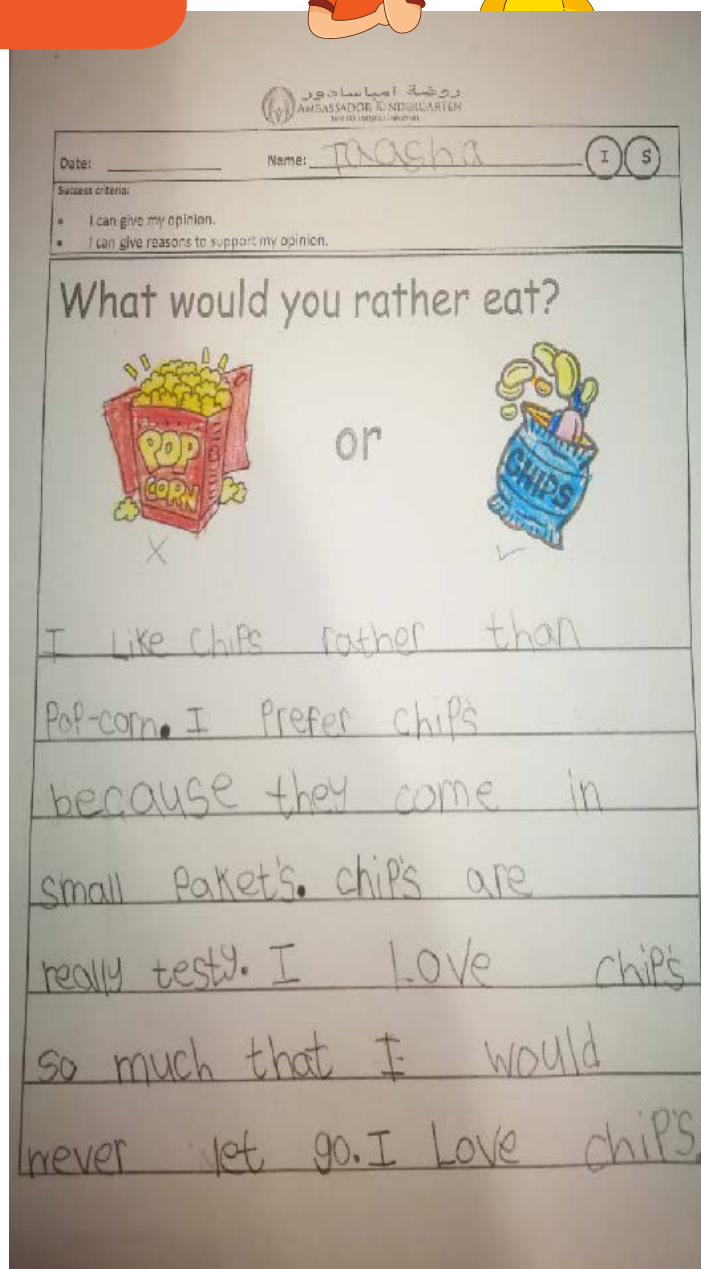 روضة امباسادور
AMBASSADOR KINDERGARTEN
Date: Name: I S
Success criteria:
• I can give my opinion.
• I can give reasons to support my opinion.
What would you rather eat?
POP CORN
or
CHIPS
I Like Chips rather than
Pop-corn. I Prefer chip's
because they come in
small Paket's. chip's are
really testy. I Love chip's
so much that I would
never let go. I Love chip's.